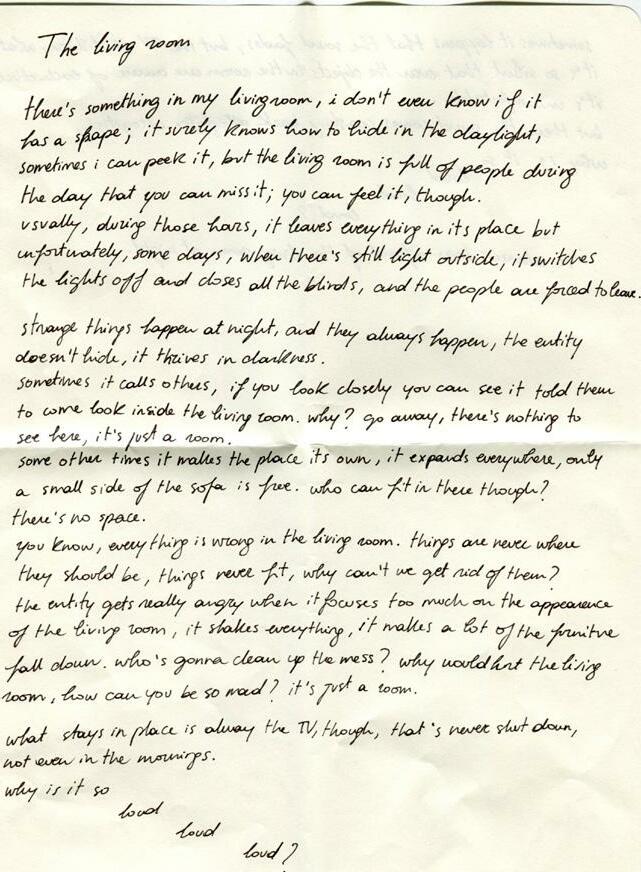 The living room
there's something in my livingroom, i don't even know if it
has a shape; it surely knows how to hide in the daylight,
sometimes i can peek it, but the living room is full of people during
the day that you can miss it; you can feel it, though.
usually, during those hours, it leaves everything in its place but
unfortunately, some days, when there's still light outside, it switches
the lights off and closes all the blinds, and the people are forced to leave.
strange things happen at night, and they always happen, the entity
doesn't hide, it thrives in darkness.
sometimes it calls others, if you look closely you can see it told them
to come look inside the living room. why? go away, there's nothing to
see here, it's just a room.
some other times it makes the place its own, it expands everywhere, only
a small side of the sofa is free. who can fit in there though?
there's no space.
you know, everything is wrong in the living room. things are never where
they should be, things never fit, why can't we get rid of them?
the entity gets really angry when it focuses too much on the appearence
of the living room, it shakes everything, it makes a lot of the furniture
fall down. who's gonna clean up the mess? why would hurt the living
room, how can you be so mad? it's just a room.
what stays in place is alway the TV, though, that's never shut down,
not even in the mornings.
why is it so
loud
loud
loud?